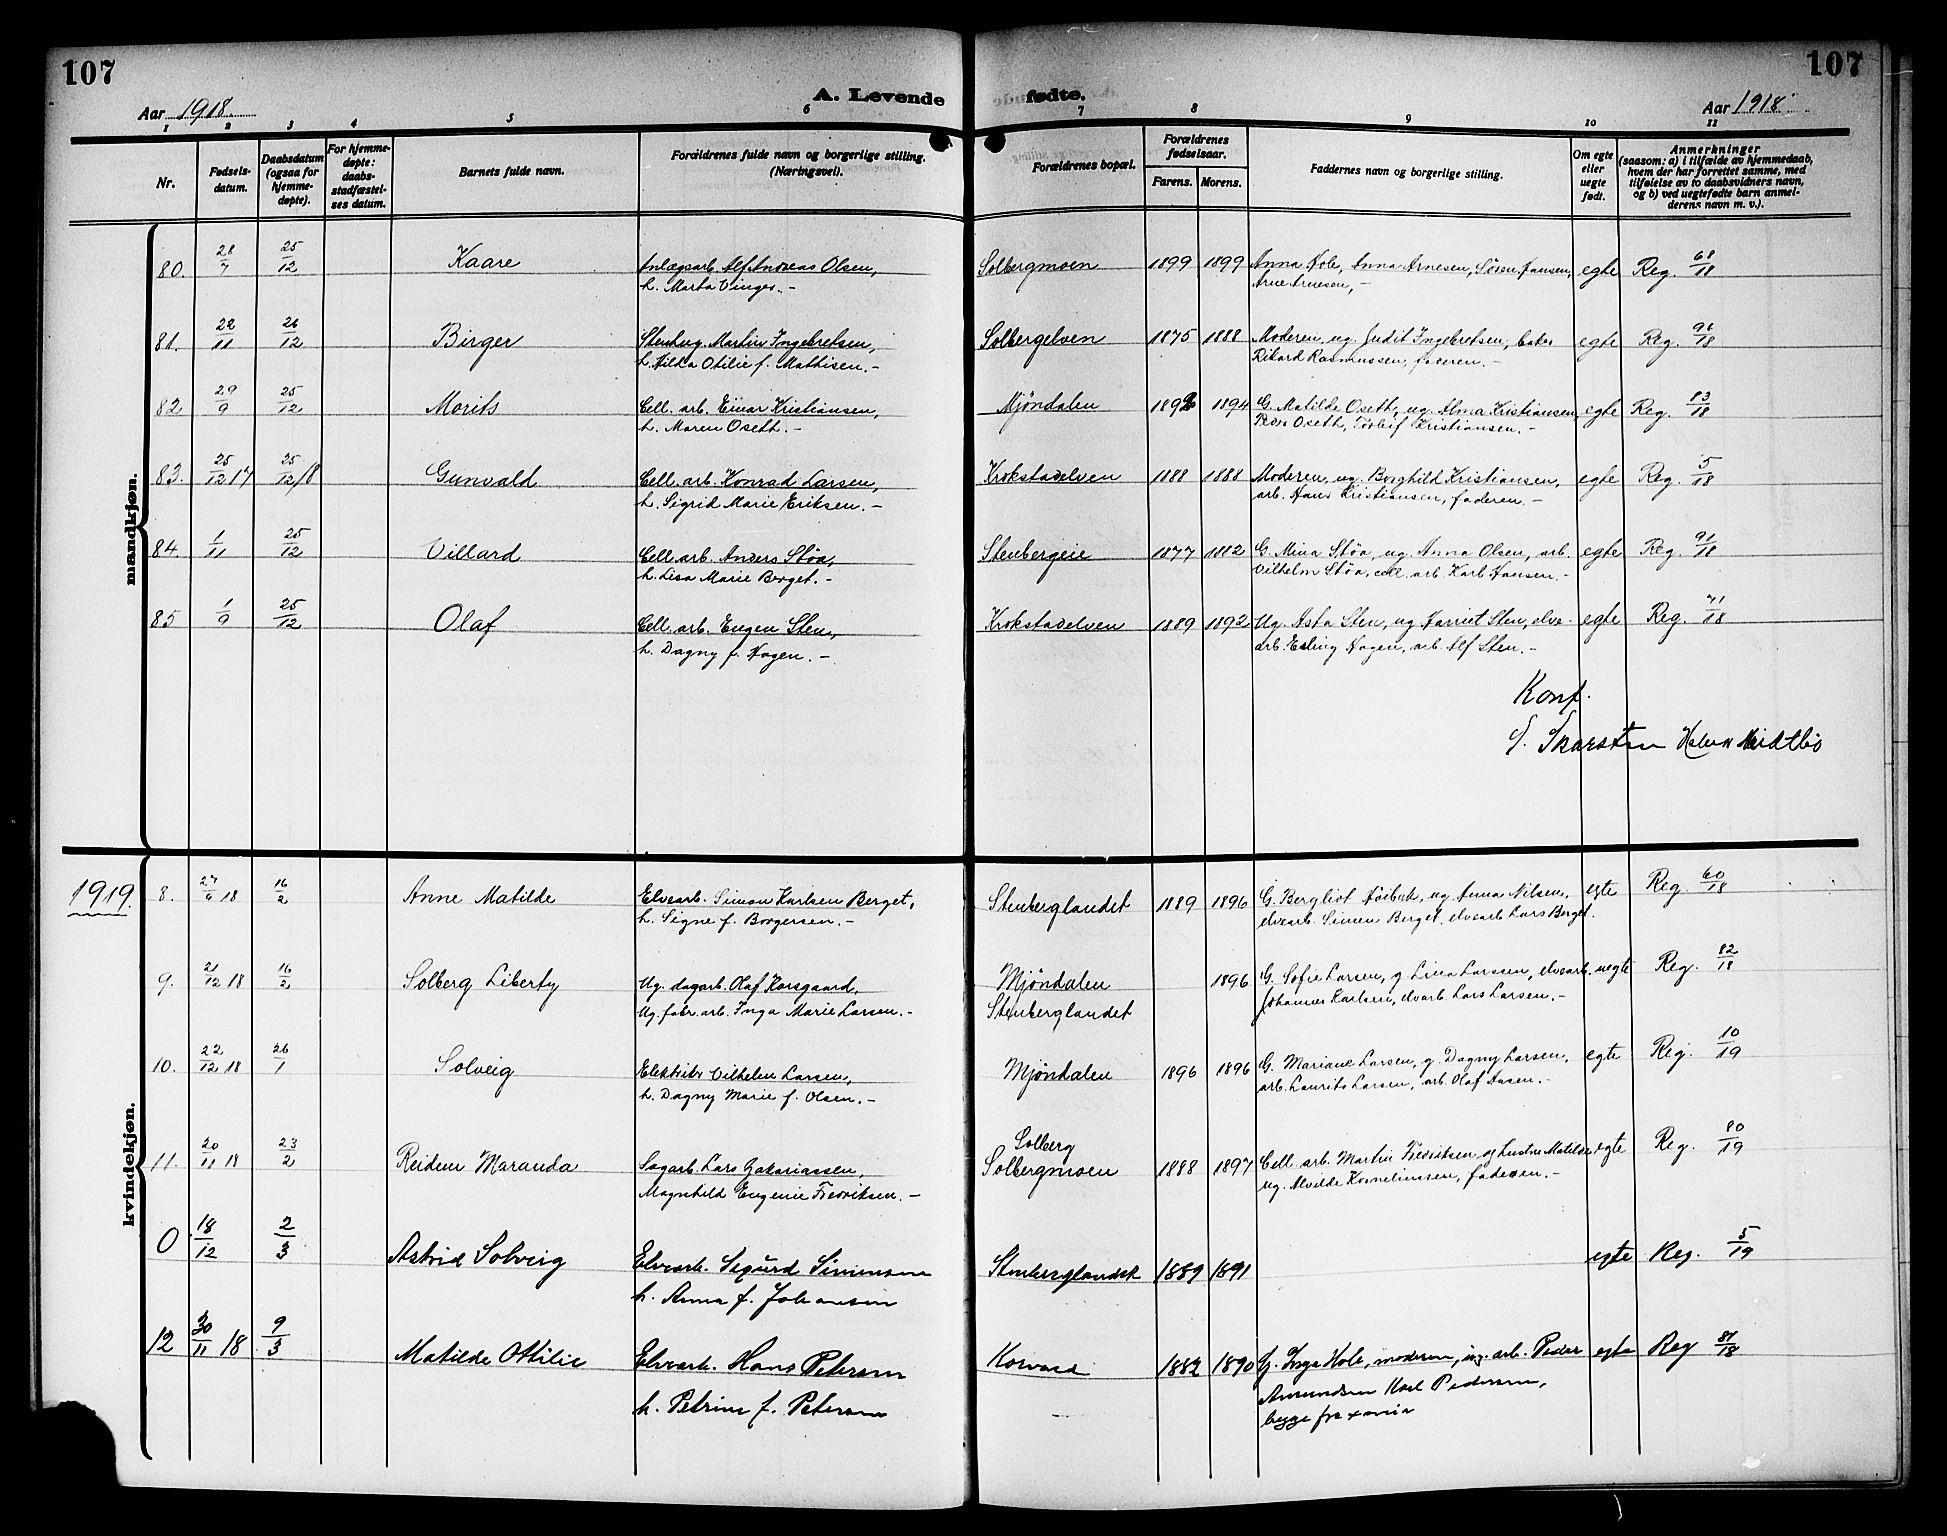 107
107
Aar 1918.
A. Levende
fødte.
Aar 1918
1 2 3 4 5 6 7 8 9 10 11
Nr.
Fødsels-
datum.
Daabsdatum
(ogsaa for
hjemme-
døpte).
For hjemme-
døpte:
daabs-
stadfæstel-
ses datum.
Barnets fulde navn.
Forældrenes fulde navn og borgerlige stilling.
(Næringsvei).
Forældrenes bopæl.
Forældrenes
fødselsaar.
Farens. Morens.
Faddernes navn og borgerlige stilling.
Om egte
eller
uegte
født.
Anmerkninger
(saasom: a) i tilfælde av hjemmedaab,
hvem der har forrettet samme, med
tilføielse av to daabsvidners navn,
og b) ved uegtefødte barn anmel-
derens navn m. v.).
mandkjøn.
80. 28/7 25/12 Kaare Anlægsarb. Alf Andreas Olsen, Solbergmoen 1899 1899 Anna Hole, Anna Arnesen, Søren Hansen, egte Reg. 68/18
h. Marta Vinger. - Arne Arnesen, -
81. 22/11 26/12 Birger Stenhug. Martin Ingebretsen, Solbergelven 1875 1888 Moderen, ug. Judit Ingebretsen, baker egte Reg. 96/18
h. Hilda Otilie f. Mathisen. - Rikard Rasmussen, faderen. -
82 29/9 25/12 Morits Cell. arb. Einar Kristiansen, Mjøndalen 1892 1894 G. Matilde Oseth, ug. Alma Kristiansen, egte Reg. 83/18
h. Maren Oseth. - Peder Oseth, Torleif Kristiansen. -
83. 25/12 17 25/12/18 Gunvald Cell. arb. Konrad Larsen, Krokstadelven 1888 1888 Moderen, ug. Borghild Kristiansen, egte Reg. 5/18
h. Sigrid Marie Eriksen. - arb. Hans Kristiansen, faderen. -
84. 1/11 25/12 Villard Cell. arb. Anders Støa, Stenbergeie 1877 1882 G. Mina Støa, ug. Anna Olsen, arb. egte Reg. 91/18
h. Lisa Marie Berget. - Vilhelm Støa, cell. arb. Karl Hansen. -
85 1/9 25/12 Olaf Cell. arb. Eugen Sten, Krokstadelven 1889 1892 Ug. Asta Sten, ug Harriet Sten, elve- egte Reg. 71/18
h. Dagny f. Hagen. - arb. Erling Hagen, arb. Alf Sten. -
Konf.
S. Skarsten Midtbø
1919.
kvindekjøn.
8. 27/6 18 16/2 Anne Matilde Elvearb. Simon Karlsen Berget, Stenberglandet 1889 1896 G. Bergliot ug Anna Nilsen, egte Reg. 60/18
h. Signe f. Borgersen. - elvearb. Simen Berget, elvearb Lars Berget.
9. 21/12 18 16/2 Solberg Liberty Ug. dagarb. Olaf Korsgaard, Mjøndalen 1896 G. Sofie Larsen, g Lina Larsen, elvearb. uegte Reg. 82/18
Ug. fabr. arb. Inga Marie Larsen. - Stenberglandet Johannes Karlsen, elvarb. Lars Larsen. -
10. 22/12 18 26/1 Solveig Elektriker Vilhelm Larsen, Mjøndalen 1896 1896 G. Mariane Larsen, g. Dagny Larsen, egte Reg. 10/19
h. Dagny Marie f. Olsen. - arb. Laurits Larsen, arb. Olaf Aasen. -
11. 20/11 18 23/2 Reidun Maranda Sagarb. Lars Zakariassen, Solberg Solbergmoen 1888 1897 Cell. arb. Martin Fredriksen og hustru Matilde, egte Reg. 80/19
Magnhild Eugenie Fredriksen. - ug. Alvilde Korneliussen, faderen. -
0 18/12 2/3 Astrid Solveig Elvearb. Sigurd Simensen Stenberglandet 1889 1891 egte Reg. 5/19
h. Anna f. Johansen
12 30/11 18 9/3 Matilde Ottilie Elvearb. Hans Petersen Korvald 1882 1890 G. Inga Hole, moderen, ug. arb. Peder egte Reg 87/18
h. Petrine f. Petersen Amundsen Karl Pedersen,
begge fra